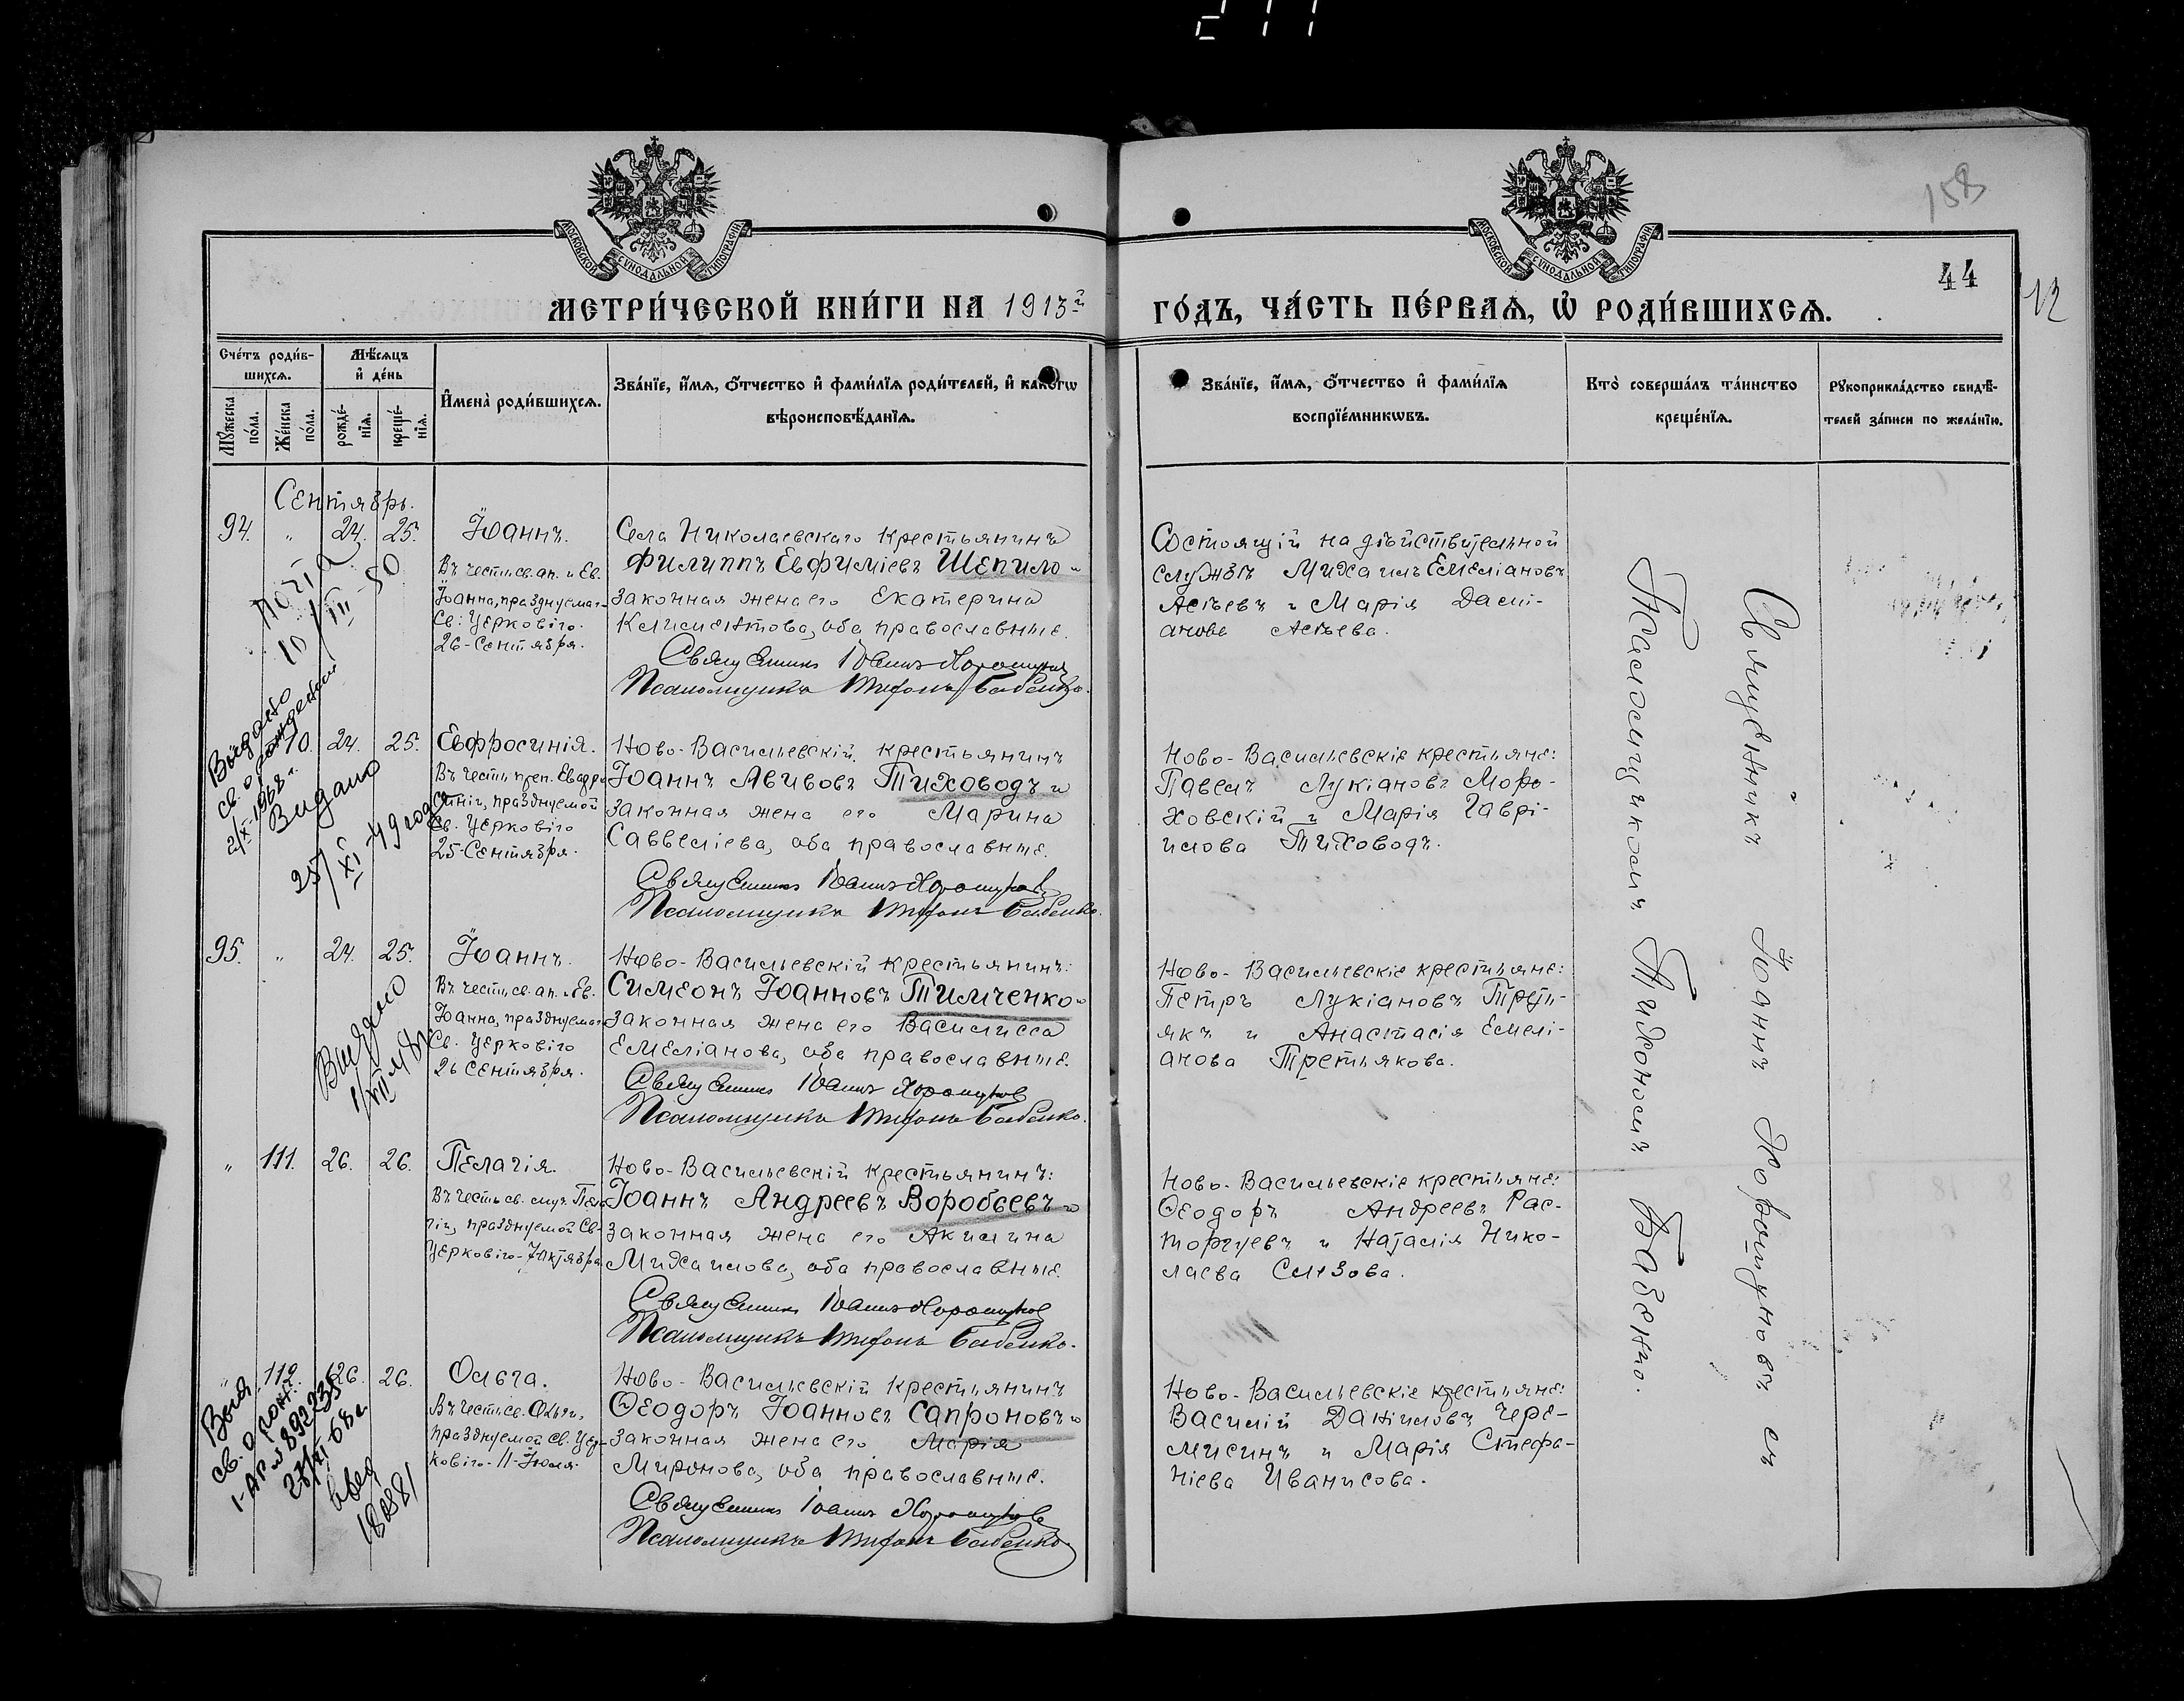 211
158
МОСКОВСКОЙ СѴНОДАЛЬНОЙ ТИПОГРАФІИ
МОСКОВСКОЙ СѴНОДАЛЬНОЙ ТИПОГРАФІИ
44
12
МЕТРИ́ЧЕСКОЙ КНИ́ГИ НА 1913й
ГО́ДЪ, ЧА́СТЬ ПЕ́РВАѦ, Ѡ РОДИ́ВШИХСѦ.
Сче́тъ роди́в-
шихсѧ.
Мѣ́сѧцъ
и де́нь
Мꙋ́жеска
по́ла.
Же́нска
по́ла.
рожде́-
нїѧ.
креще́-
нїѧ.
И́мена̀ роди́вшихсѧ.
Зва́нїе, и́мѧ, ѻ́тчество и фами́лїѧ роди́телей, и како́гѡ
вѣроисповѣ́данїѧ.
Зва́нїе, и́мѧ, ѻ́тчество и фами́лїѧ
воспрїе́мникѡвъ.
Кто̀ соверша́лъ та́инство
креще́нїѧ.
Рꙋкоприкла́дство свидѣ́-
телей за́писи по жела́нїю.
Сентябрь.
94. " 24. 25. Іоаннъ.
Въ честь св. ап. и Ев.
Іоанна, празднуемаго
Св. Церковію
26-Сентября.
Села Николаевскаго крестьянинъ
Филиппъ Евфиміевъ Шепило и
законная жена его Екатерина
Климентова, оба православные.
Священникъ Іоаннъ Хорошуновъ
Псаломщикъ Тихонъ Бабенко.
Состоящій на дѣйствительной
службѣ Михаилъ Емеліановъ
Асѣевъ и Марія Даміт-
анова Асѣева.
10/III-50
110. 24. 25. Евфросинія.
Въ честь преп. Евфро-
синіи, празднуемой
Св. Церковію
25-Сентября.
Ново-Васильевскій крестьянинъ
Іоаннъ Авивовъ Тиховодъ и
законная жена его Марина
Савvеліева, оба православные.
Священникъ Іоаннъ Хорошуновъ
Псаломщикъ Тихонъ Бабенко.
Ново-Васильевскіе крестьяне:
Павелъ Лукіановъ Моро-
ховскій и Марія Гаврі-
илова Тиховодъ.
Выдано
св. о рождении
2/X-1968 г.
Видано
25/XI-49 года
95. " 24. 25. Іоаннъ.
Въ честь св. ап. и Ев.
Іоанна, празднуемаго
Св. Церковію
26 Сентября.
Ново-Васильевскій крестьянинъ:
Симеонъ Іоанновъ Тимченко и
законная жена его Василисса
Емеліанова, оба православные.
Священникъ Іоаннъ Хорошуновъ
Псаломщикъ Тихонъ Бабенко.
Ново-Васильевскіе крестьяне:
Петръ Лукіановъ Треть-
якъ и Анастасія Емелі-
анова Третьякова.
" 111. 26. 26. Пелагія.
Въ честь св. муч. Пела-
гіи, празднуемой Св.
Церковію-7 Октября.
Ново-Васильевскій крестьянинъ:
Іоаннъ Андреевъ Воробьевъ и
законная жена его Акилина
Михаилова, оба православные.
Священникъ Іоаннъ Хорошуновъ
Псаломщикъ Тихонъ Бабенко.
Ново-Васильевскіе крестьяне:
Ѳеодоръ Андреевъ Рас-
торгуевъ и Наталія Нико-
лаева Сизова.
" 112. 26. 26. Ольга.
Въ честь св. Ольги,
празднуемой Св. Цер-
ковію-11-Іюля.
Ново-Васильевскій крестьянинъ
Ѳеодоръ Іоанновъ Сапроновъ и
законная жена его Марія
Миронова, оба православные.
Священникъ Іоаннъ Хорошуновъ
Псаломщикъ Тихонъ Бабенко.
Ново-Васильевскіе крестьяне:
Василій Даніиловъ Чере-
мисинъ и Марія Стефа-
ніева Иванисова.
св. о рожд.
I-АП № 892235
Священникъ Іоаннъ Хорошуновъ съ
Псаломщикомъ Тихономъ Бабенко.